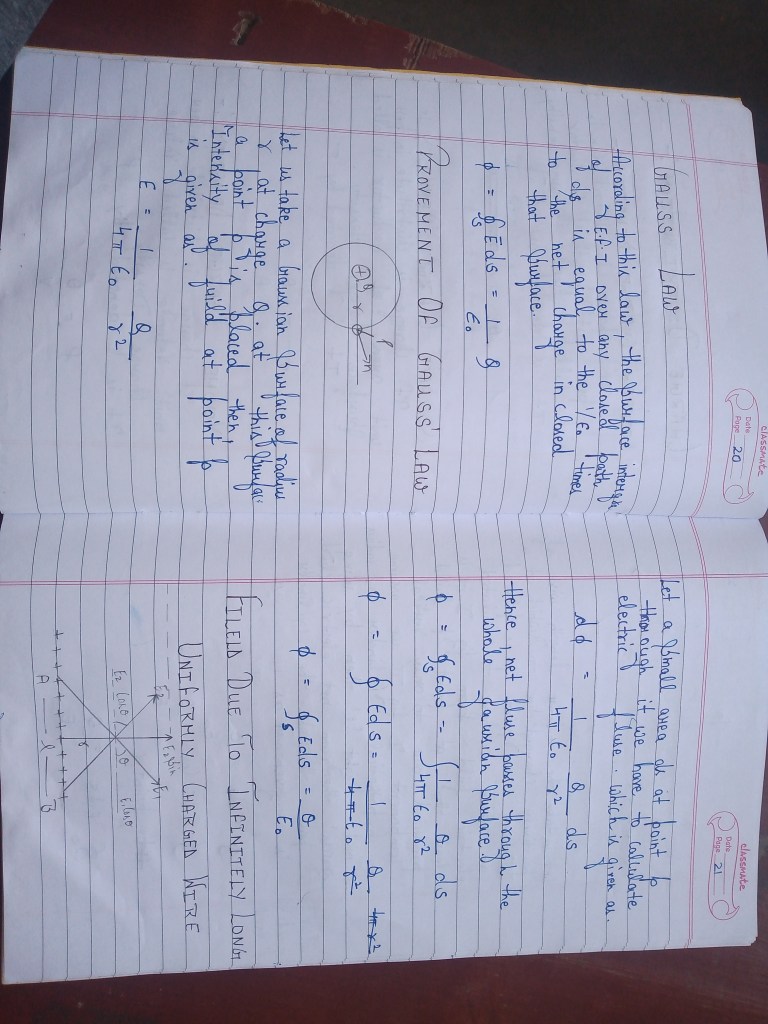 classmate
Date
Page 20
GAUSS LAW
According to this law, the surface integra
of E.F.I over any closed path
of ds is equal to the 1/ε₀ times
to the net charge in closed
that surface.
ϕ = ∮s Eds = 1/ε₀ Q
PROVEMENT OF GAUSS' LAW
Q
r
P
n
Let us take a Gaussian surface of radius
r at charge Q. at this surfac
a point p is placed then,
Intensity of feild at point p
is given as.
E = 1/4π ε₀ Q/r²
classmate
Date
Page 21
Let a small area ds at point p
thorough it we have to calculate
electric fluse. which is given as.
dϕ = 1/4π ε₀ Q/r² ds
Hence, net fluse passes through the
whole gaussian surface
ϕ = ∮s Eds = ∫ 1/4π ε₀ Q/r² ds
ϕ = ∮ Eds = 1/4π ε₀ Q/r² 4πr²
ϕ = ∮s Eds = Q/ε₀
FILELD DUE TO INFINITELY LONG
UNIFORMLY CHARGED WIRE
E2
E1
E2 cosθ
θ
E1 cosθ
r
+ + + + + + + + +
A l B